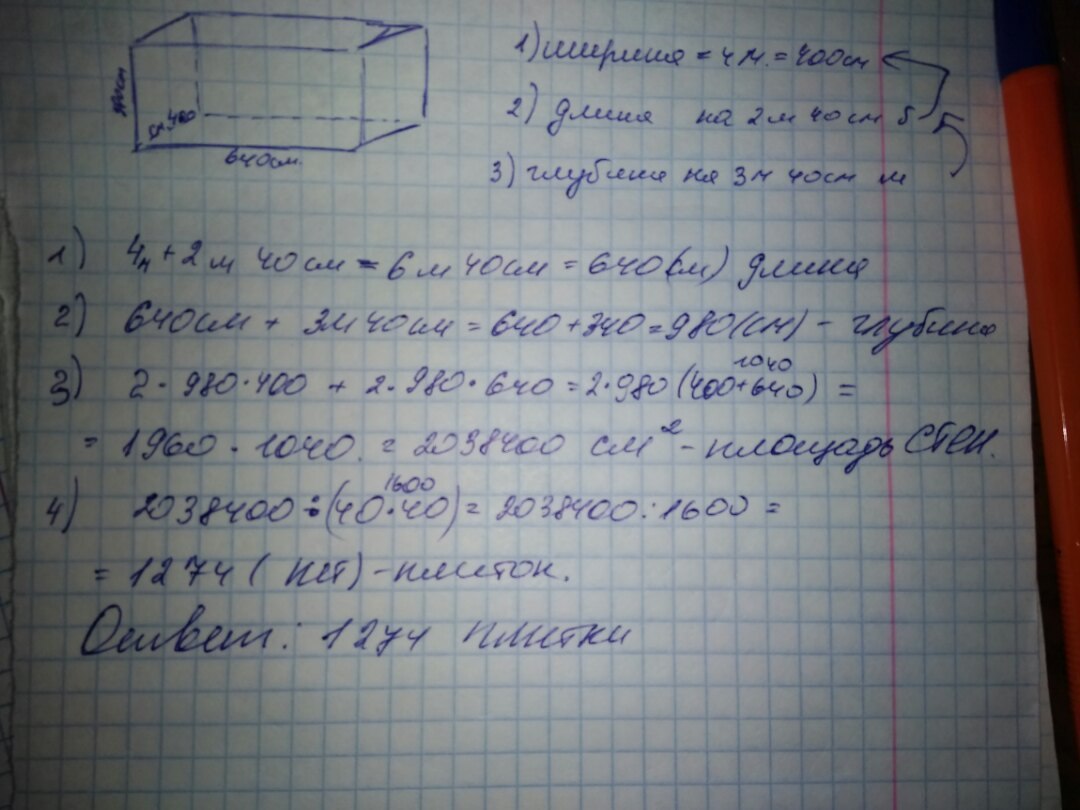 1) ширина = 4 м. = 400см
2) длина на 2м 40см б
3) глубина на 3м 40см м
см 400
640см
1) 4м + 2 м 40 см = 6 м 40см = 640(см) длина
2) 640см + 3м 40см = 640 + 340 = 980(см) - глубина
1040
3) 2 · 980 · 400 + 2 · 980 · 640 = 2 · 980 (400 + 640) =
= 1960 · 1040. = 2038400 см² - площадь СТЕН.
1600
4) 2038400 ÷ (40 · 40) = 2038400 : 1600 =
= 1274 ( шт) - плиток.
Ответ: 1274 плитки